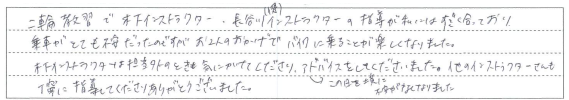 二輪教習で木下インストラクター、長谷川(優)インストラクターの指導が私にはすごく合っており
乗車がとても不安だったのですがお2人のおかげでバイクに乗ることが楽しくなりました。
木下インストラクターは担当外のときも気にかけてくださり、アドバイスをしてくださいました。他のインストラクターさんも
この日を境に
不安がなくなりました
丁寧に指導してくださりありがとうございました。